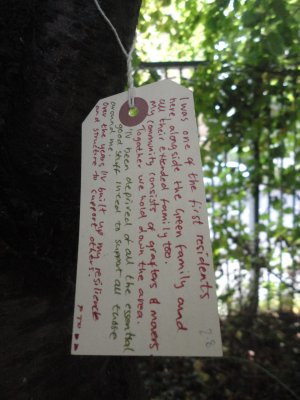 I was one of the first residents
here, alongside the Green family and
all their extended family too.
My community consists of grafters & movers
Together we hold down the area
I've been deprived of all the essential
good stuff I need to support all those
around me
Over the years I've built up my resilience
and structure to support others.
PTO
28